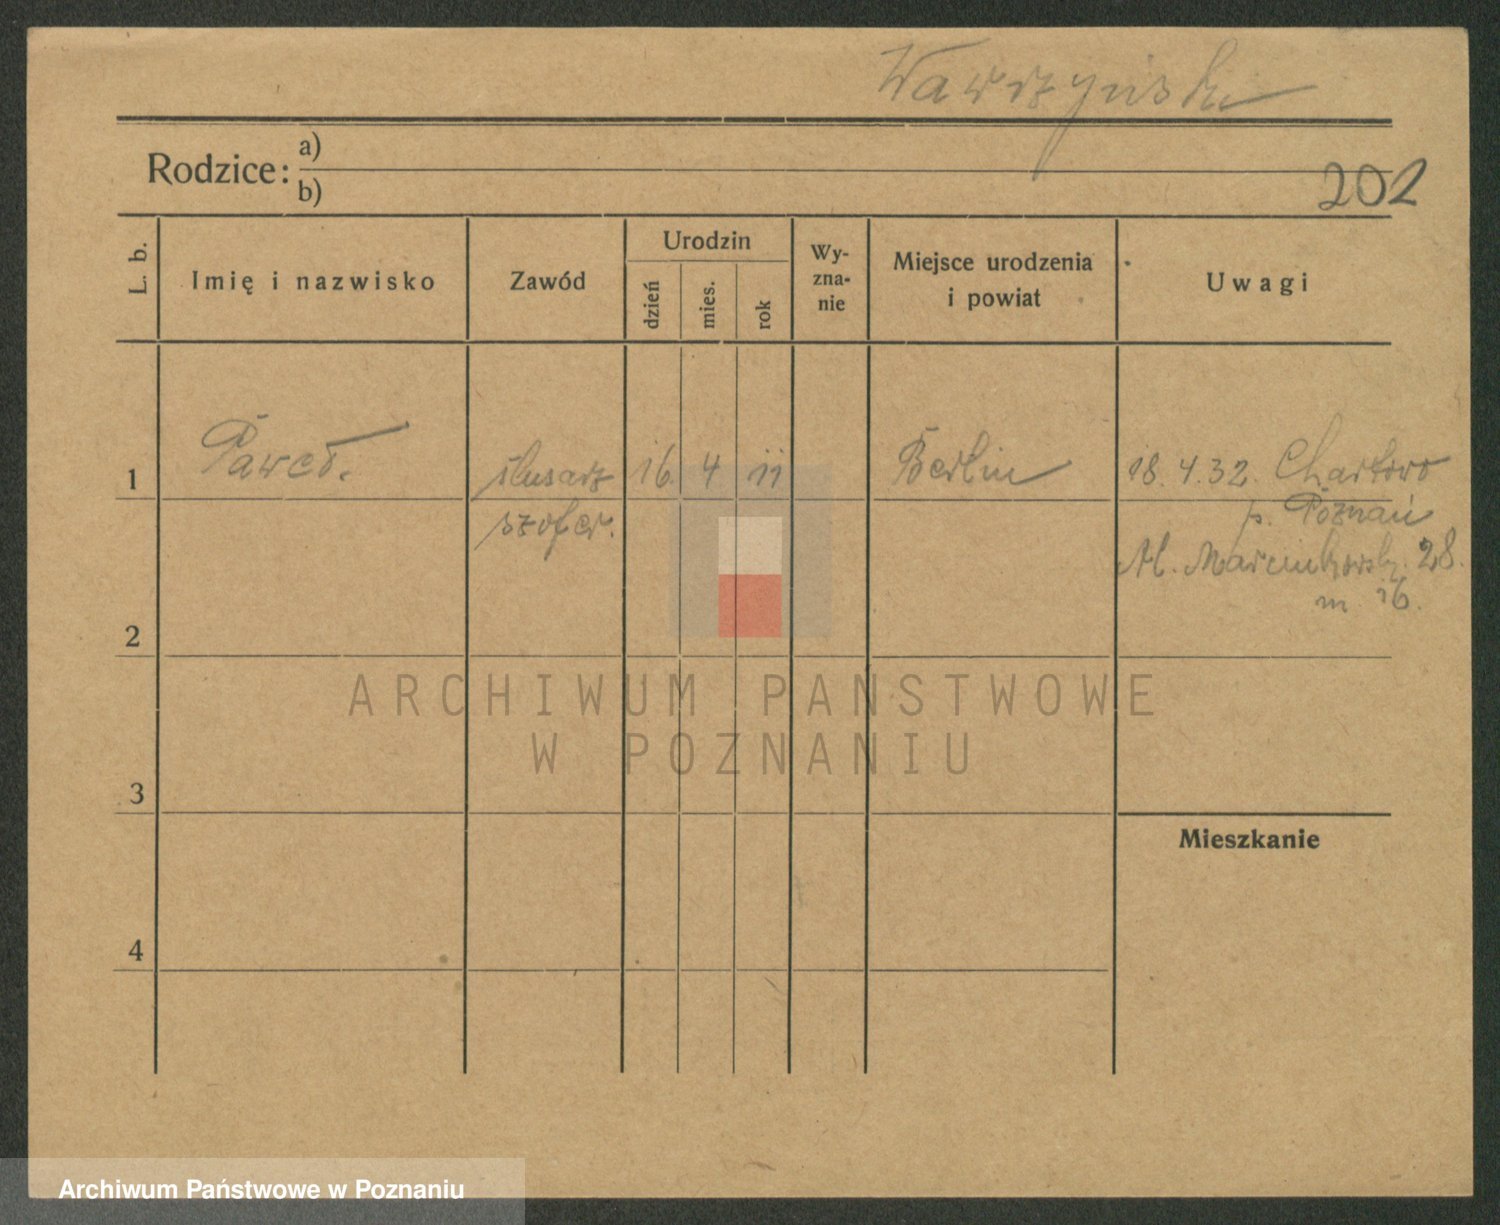 Wawrzyński
Rodzice: a)
b)
202
L. b.
Imię i nazwisko
Zawód
Urodzin
dzień
mies.
rok
Wy-
zna-
nie
Miejsce urodzenia
i powiat
Uwagi
1
Paweł.
ślusarz
szofer.
16.
4
11
Berlin
18.4.32. Chartowo
p. Poznań
Al. Marcinkowsk. 28.
m. 16.
2
3
4
Mieszkanie
ARCHIWUM PAŃSTWOWE
W POZNANIU
Archiwum Państwowe w Poznaniu